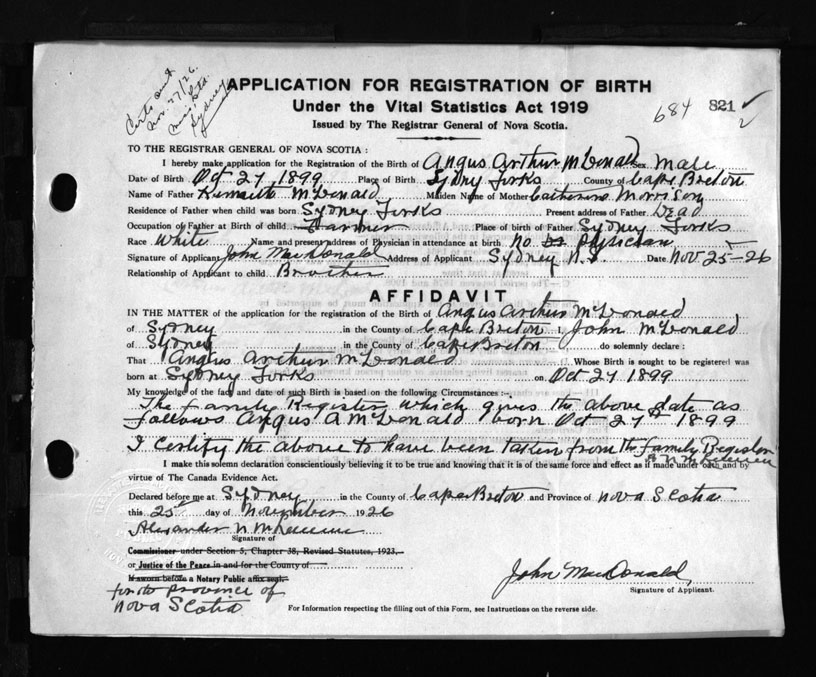 Certs sent
Nov. 27/26.
Sydney
APPLICATION FOR REGISTRATION OF BIRTH
Under the Vital Statistics Act 1919
Issued by The Registrar General of Nova Scotia.
684 821
TO THE REGISTRAR GENERAL OF NOVA SCOTIA:
I hereby make application for the Registration of the Birth of Angus Arthur McDonald Sex Male
Date of Birth Oct 27, 1899 Place of Birth Sydney Forks County of Cape Breton
Name of Father Kenneth McDonald Maiden Name of Mother Catherine Morrison
Residence of Father when child was born Sydney Forks Present address of Father Dead
Occupation of Father at Birth of child Farmer Place of birth of Father Sydney Forks
Race White Name and present address of Physician in attendance at birth no physician
Signature of Applicant John MacDonald Address of Applicant Sydney N.S. Date Nov 25-26
Relationship of Applicant to child Brother
AFFIDAVIT
IN THE MATTER of the application for the registration of the Birth of Angus Arthur McDonald
of Sydney in the County of Cape Breton I, John McDonald
of Sydney in the County of Cape Breton do solemnly declare:
That Angus Arthur McDonald Whose Birth is sought to be registered was
born at Sydney Forks on Oct 27 1899
My knowledge of the fact and date of such Birth is based on the following Circumstances:
The family Register which gives the above date as
follows Angus A McDonald born Oct 27th 1899
I certify the above to have been taken from the family Register
I make this solemn declaration conscientiously believing it to be true and knowing that it is of the same force and effect as if made under oath and by
virtue of The Canada Evidence Act.
Declared before me at Sydney in the County of Cape Breton and Province of Nova Scotia
this 25th day of November 1926
Alexander N
Signature of
Commissioner under Section 5, Chapter 38, Revised Statutes, 1923,
or Justice of the Peace in and for the County of
If sworn before a Notary Public affix seal.
for the Province of
Nova Scotia
John MacDonald
Signature of Applicant.
For Information respecting the filling out of this Form, see Instructions on the reverse side.